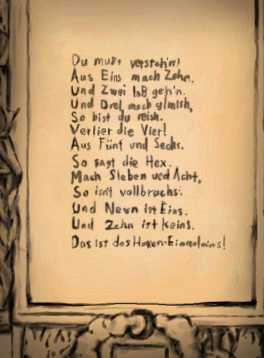 Du mußt versteh'n!
Aus Eins mach Zehn,
Und Zwei laß geh'n,
Und Drei mach glmich,
So bist du reich.
Verlier die Vier!
Aus Fünf und Sechs.
So sagt die Hex.
Mach Sieben und Acht,
So isnt vollbrachs:
Und Neun ist Eins.
Und Zehn ist Keins.
Das ist das Hexen-Einmaleins!